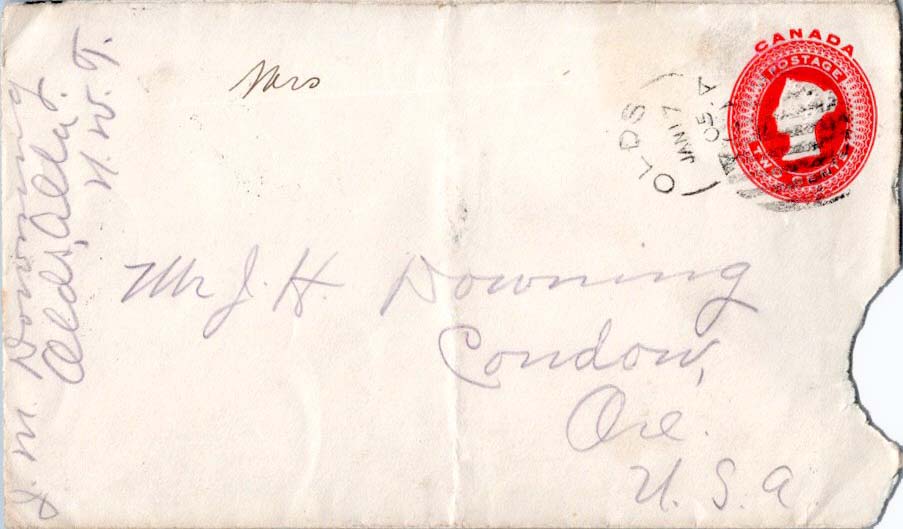 CANADA
POSTAGE
TWO CENTS
OLDS
JAN 17
05
Mrs
Mr J. H. Downing
Condow,
Ore.
U. S. A.
J. M. Downing
Olds, Alta.
N. W. T.